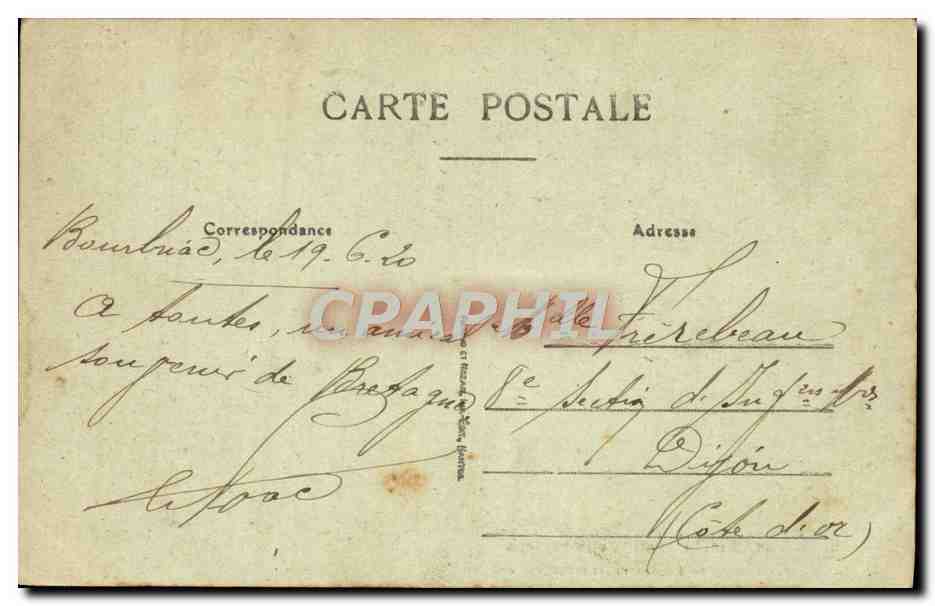 CARTE POSTALE
Correspondance
Bourbriac, le 19-6-20
A toutes, un amical
souvenir de Bretagne
Adresse
Melle Frèrebeau
8e Section d'Inf
Dijon
(Côte d'or)
CRAPHIL